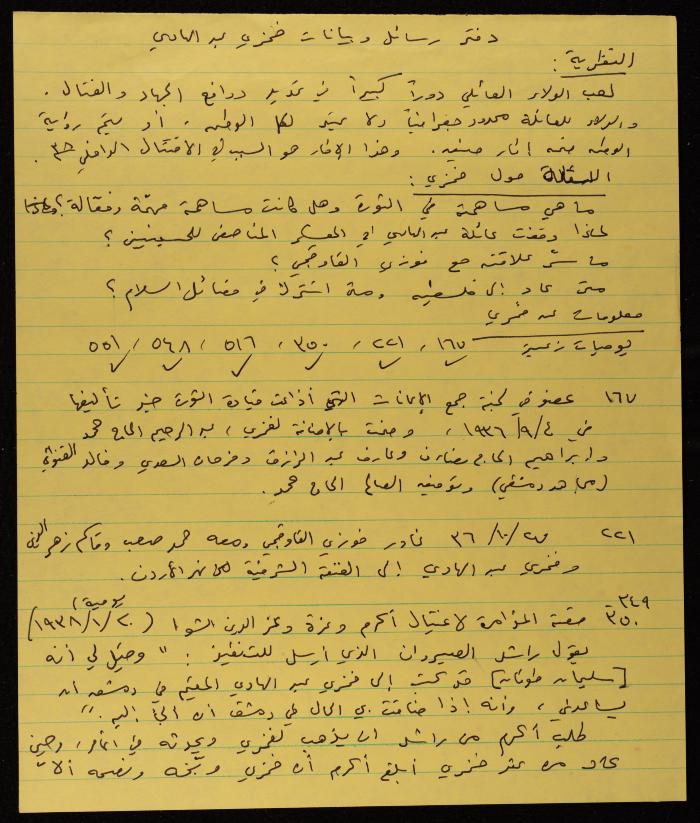 دفتر رسائل وبيانات فخري عبد الهادي
النظرية :
لعب الولاء العائلي دوراً كبيراً في تحديد دوافع الجهاد والقتال .
والولاء للعائلة محدود جغرافياً ولا يمتد لكل الوطن ، أو يتم رؤية
الوطن ضمن إطار ضيق . وهذا الإطار هو السبب في الاقتتال الداخلي
الاسئلة حول فخري :
ما هي مساهمة في الثورة وهل كانت مساهمة مهمّة وفعّالة ؟
لماذا وقفت عائلة عبد الهادي في المعسكر المناهض للحسينيين ؟
ما سرّ علاقته مع فوزي القاوقجي ؟
متى عاد إلى فلسطين ومتى اشترك في فصائل السلام ؟
معلومات عن فخري
يوميات زعيتر ١٦٧ ، ٢٢١ ، ٣٥٠ ، ٥١٦ ، ٥٤٨ ، ٥٥١
١٦٧ عضو في لجنة جمع الإعانات التي أذاعت قيادة الثورة خبر تأليفها
في ١٩٣٦/٩/٤ ، وضمت بالإضافة لفخري ، عبد الرحيم الحاج محمد
وإبراهيم الحاج وعارف عبد الرازق وفرحان السعدي وخالد القنواتي
(مجاهد دمشقي) وتوفيق الصالح الحاج محمد .
٢٢١ ٣٦/١٠/٢٥ غادر فوزي القاوقجي ومعه حمد صعب وقاسم زهر الدين
وفخري عبد الهادي إلى الضفة الشرقية لنهر الأردن .
٣٤٩
٣٥٠ قصة المؤامرة لاغتيال أكرم وعزة وعز الدين الشوا (يومية ١٩٣٨/١/٢٠)
يقول راشد الذي أرسل للتنفيذ : " وقيل لي أنه
[سليمان طوقان] قد كتب إلى فخري عبد الهادي المقيم في دمشق أن
يساعدني ، وأنه إذا ضاقت بي الحال في دمشق أن ألجأ إليه ."
طلب أكرم من راشد أن يذهب لفخري ويحدثه في الأمر ، وحين
عاد من عند فخري أبلغ أكرم أن فخري وبّخه ونصحه ألا